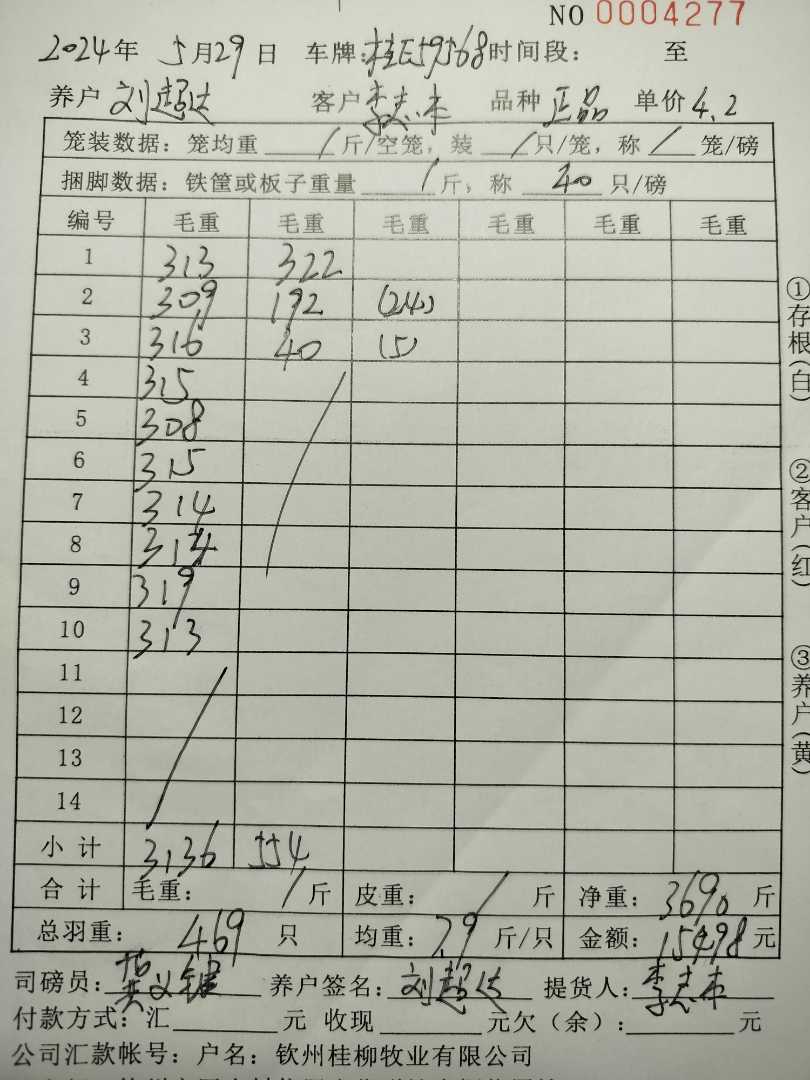 NO 0004277
2024年 5月29日 车牌:桂E59568 时间段: 至
养户 刘超达 客户 李志本 品种 正品 单价 4.2
笼装数据: 笼均重 / 斤/空笼, 装 / 只/笼, 称 / 笼/磅
捆脚数据: 铁筐或板子重量 / 斤, 称 40 只/磅
编号 毛重 毛重 毛重 毛重 毛重 毛重
1 313 322
2 309 192 (24)
3 316 40 (5)
4 315
5 308
6 315
7 314
8 314
9 319
10 313
11
12
13
14
小计 3136 554
合计 毛重: / 斤 皮重: / 斤 净重: 3690 斤
总羽重: 469 只 均重: 7.9 斤/只 金额: 15498 元
司磅员: 养户签名: 刘超达 提货人: 李志本
付款方式: 汇 元 收现 元欠(余): 元
公司汇款帐号: 户名: 钦州桂柳牧业有限公司
①存根(白)
②客户(红)
③养户(黄)